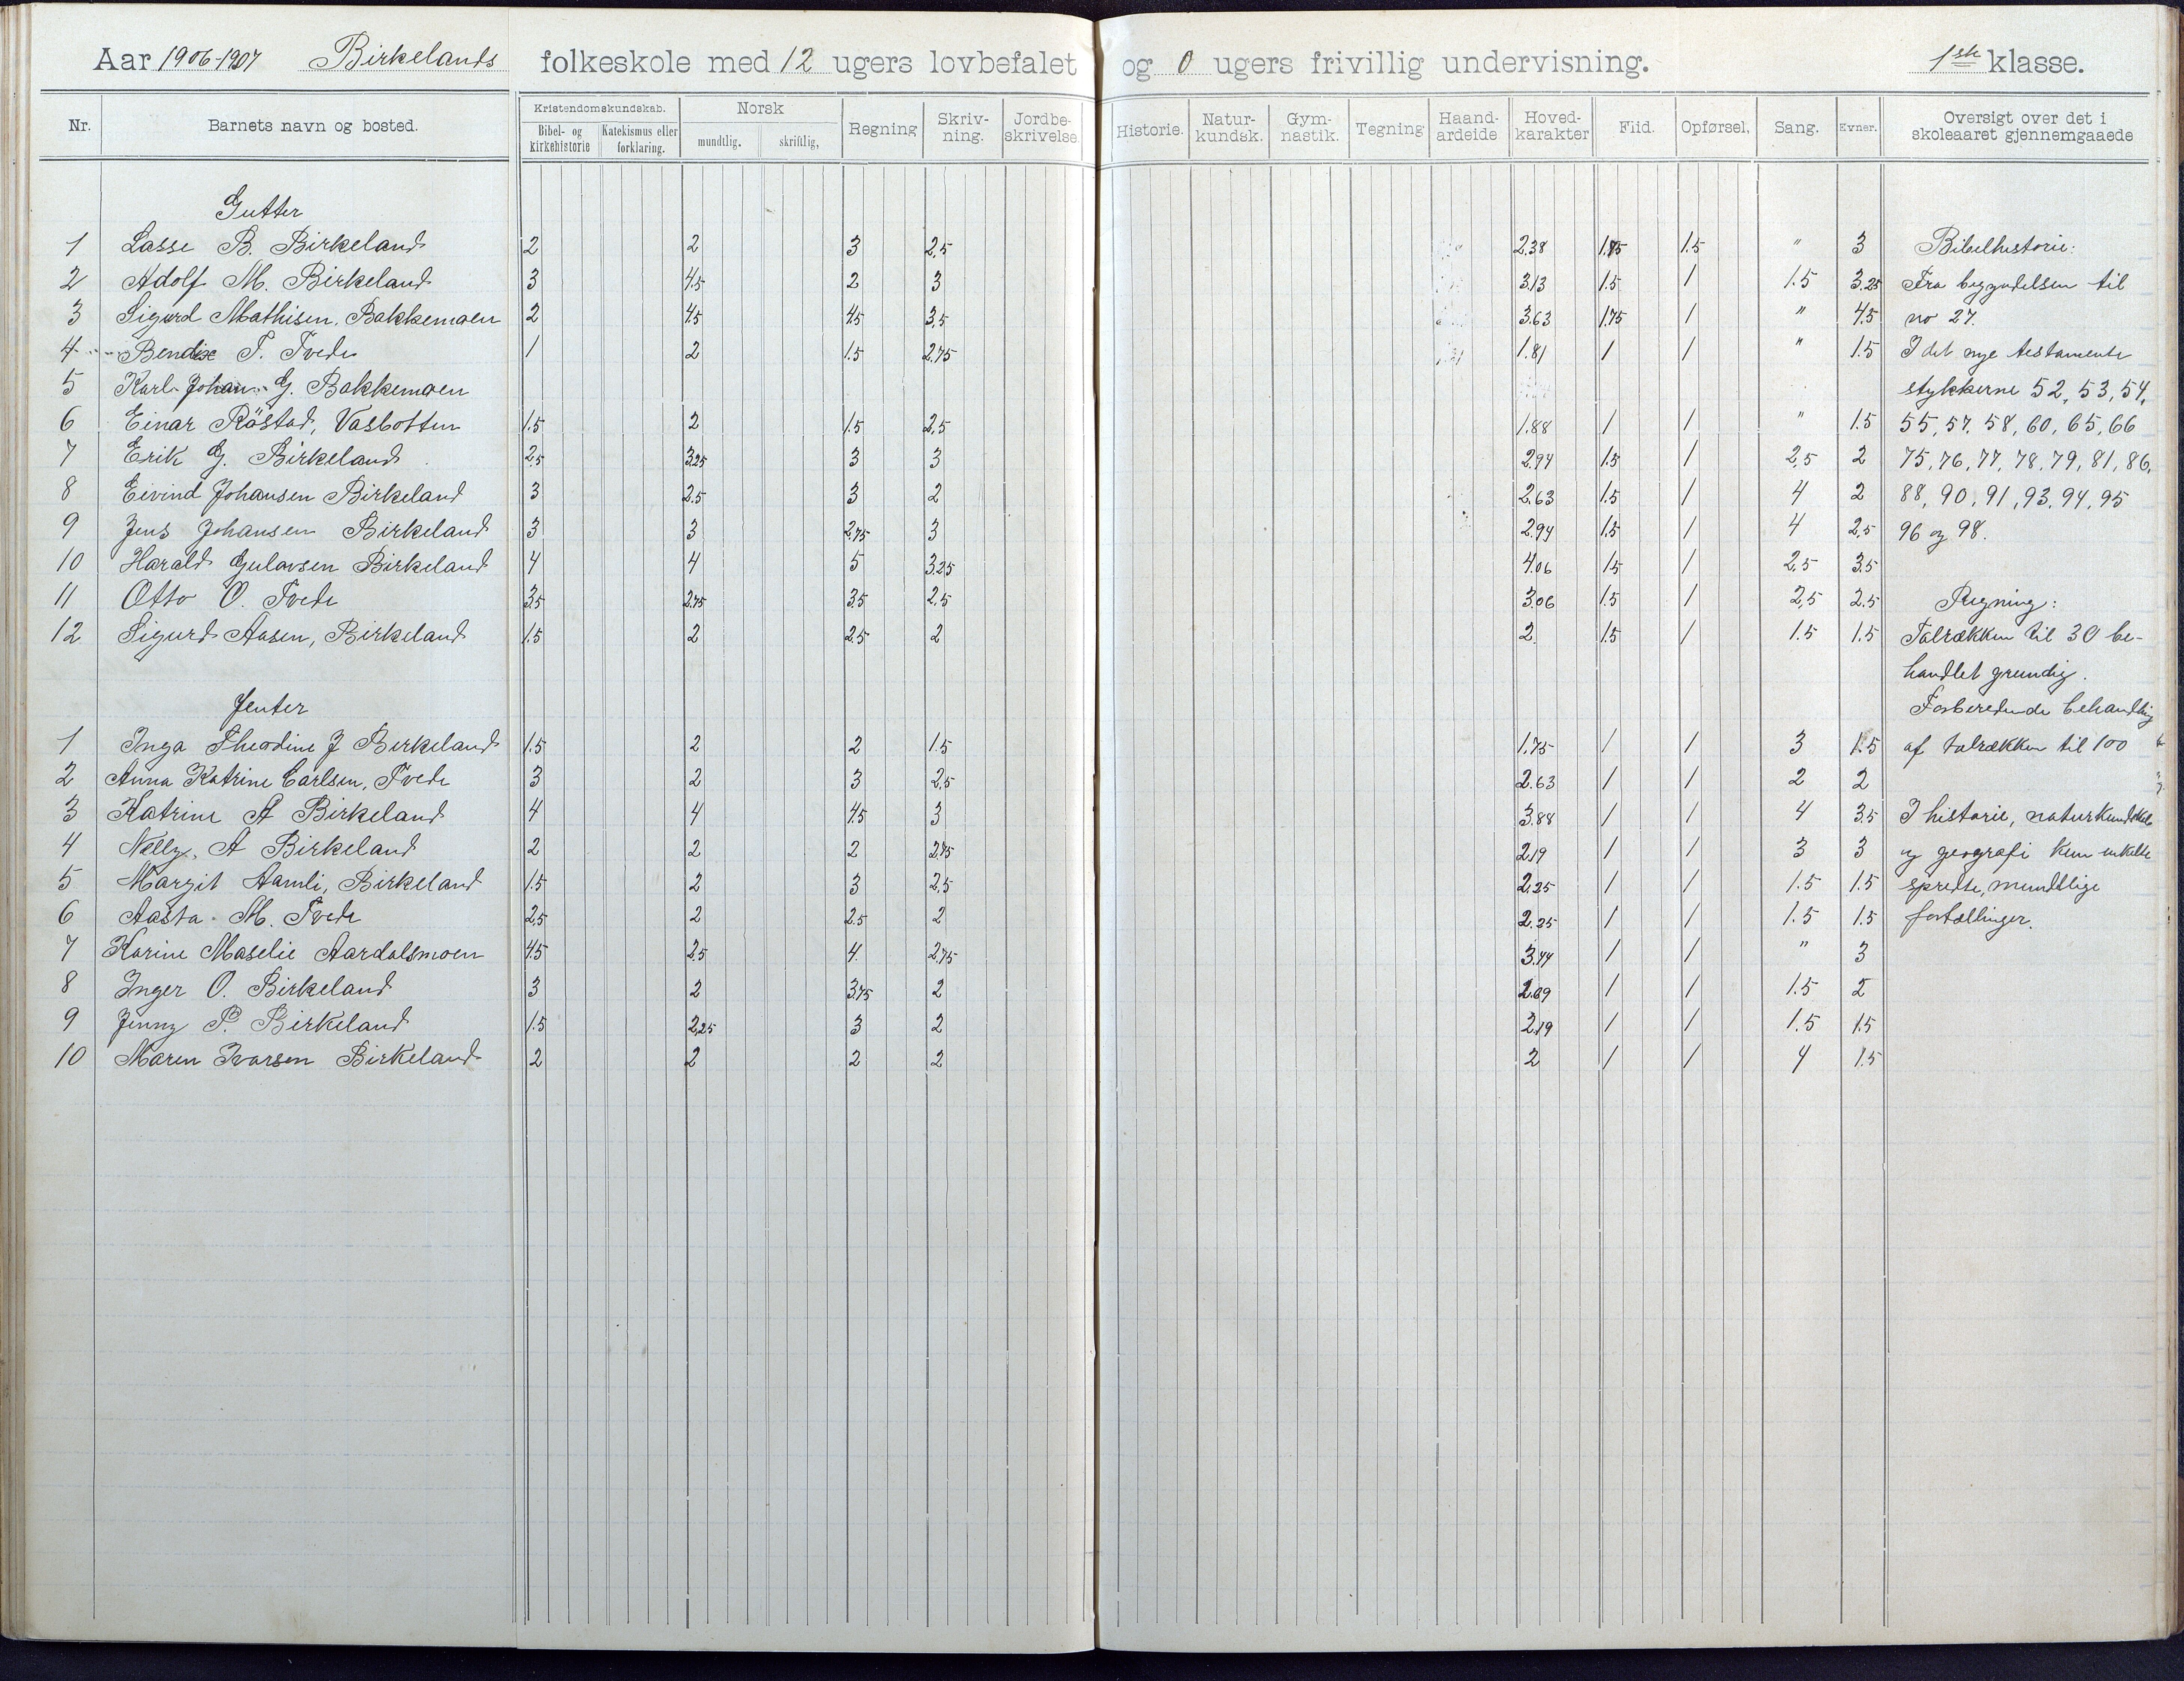 Aar 1906-1907 Birkelands folkeskole med 12 ugers lovbefalet og 0 ugers frivillig undervisning. 1ste klasse.
Nr. Barnets navn og bosted. Kristendomskundskab. Bibel- og kirkehistorie Katekismus eller forklaring. Norsk mundtlig. skriftlig, Regning Skriv-ning. Jordbe-skrivelse. Historie. Natur-kundsk. Gym-nastik. Tegning Haand-arbeide Hoved-karakter Flid. Opførsel. Sang. Evner. Oversigt over det i skoleaaret gjennemgaaede
Gutter
1 Lasse B. Birkeland 2 2 3 2,5 2.38 1.75 1.5 " 3 Bibelhistorie:
2 Adolf M. Birkeland 3 4.5 2 3 3.13 1.5 1 1.5 3.25 Fra begyndelsen til
3 Sigurd Mathisen, Bakkemoen 2 4.5 4.5 3,5 3.63 1.75 1 " 4.5 no 27.
4 Bendix T. Tvede 1 2 1.5 2.75 1.81 1 1 " 1.5 I det nye testamente
5 Karl Johan G. Bakkemoen stykkerne 52, 53, 54,
6 Einar Röstad, Vasbotten 1.5 2 1.5 2,5 1.88 1 1 " 1.5 55, 57, 58, 60, 65, 66
7 Erik G. Birkeland 2,5 3.25 3 3 2.94 1.5 1 2,5 2 75, 76, 77, 78, 79, 81, 86,
8 Eivind Johansen Birkeland 3 2.5 3 2 2.63 1.5 1 4 2 88, 90, 91, 93, 94, 95
9 Jens Johansen Birkeland 3 3 2,75 3 2.94 1.5 1 4 2,5 96 og 98.
10 Harald Gulovsen Birkeland 4 4 5 3.25 4.06 1.5 1 2,5 3.5
11 Otto O. Tvede 3.5 2.75 3.5 2,5 3.06 1.5 1 2,5 2.5 Regning:
12 Sigurd Aasen, Birkeland 1.5 2 2.5 2 2. 1.5 1 1.5 1.5 Talrækken til 30 be-
handlet grundig.
Jenter Forberedende behandling
1 Inga Theodine J Birkeland 1.5 2 2 1.5 1.75 1 1 3 1.5 af talrækken til 100
2 Anna Katrine Carlsen, Tvede 3 2 3 2,5 2.63 1 1 2 2
3 Katrine A Birkeland 4 4 4.5 3 3.88 1 1 4 3.5 I historie, naturkundskab
4 Nelly. A Birkeland 2 2 2 2.75 2.19 1 1 3 3 og geografi kun enkelte
5 Margit Aamli, Birkeland 1.5 2 3 2,5 2.25 1 1 1.5 1.5 spredte, mundtlige
6 Aasta M. Tvede 2,5 2 2.5 2 2.25 1 1 1.5 1.5 fortællinger.
7 Karine Maselie Aardalsmoen 4.5 2.5 4. 2.75 3.44 1 1 " 3
8 Inger O. Birkeland 3 2 3.75 2 2.69 1 1 1.5 2
9 Jenny P. Birkeland 1.5 2,25 3 2 2.19 1 1 1.5 1.5
10 Maren Ivarsen Birkeland 2 2 2 2 2 1 1 4 1.5